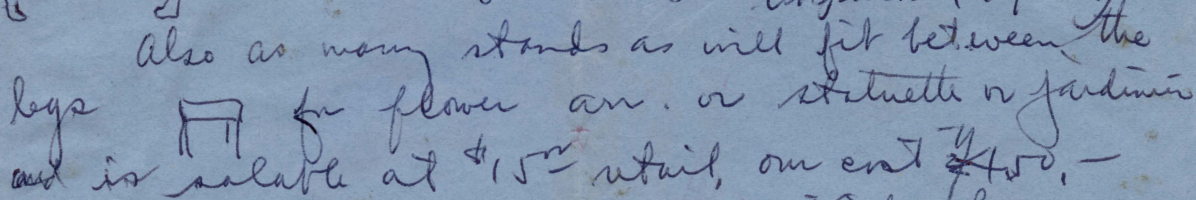 Also as many stands as will fit between the
legs for flower arr. or statuette or jardinier
and is salable at $15.00 retail, our cost